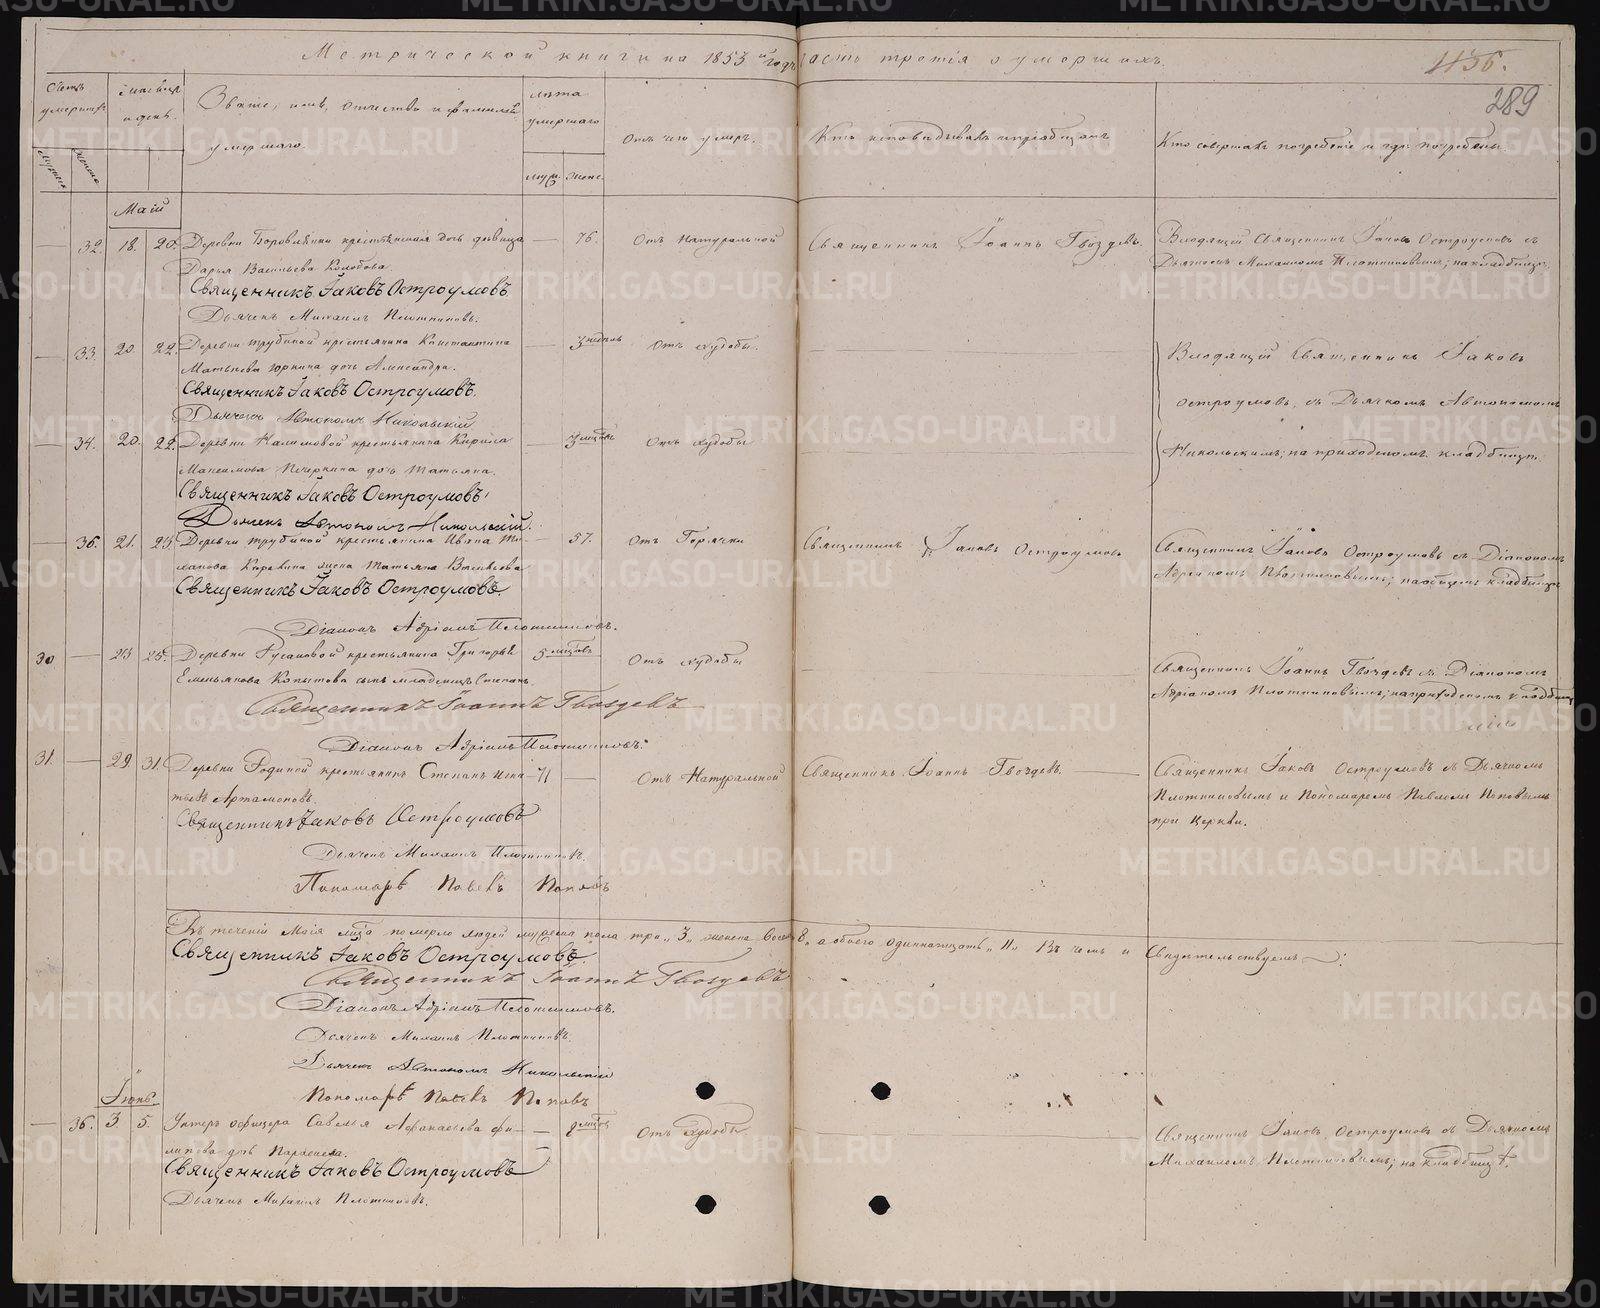 Метрической книги на 1853 й годъ часть третія о умершихъ.
436.
289
Счетъ умершихъ
Мужеска
Женска
Мѣсяцъ и день.
Званіе, имя, отчество и фамилія умершаго.
лѣта умершаго
муж. женс.
Отъ чего умеръ.
Кто исповѣдывалъ и пріобщалъ
Кто совершалъ погребеніе и гдѣ погребены.
Маій
32. 18. 20. Деревни Боровлянки крестьянская дочь дѣвица — 76. Отъ Натуральной Священникъ Іоаннъ Гвоздевъ. Входящій Священникъ Іаковъ Остроумовъ съ
Дарья Васильева Колобова. Дьячкомъ Михаиломъ Плотниковымъ; на кладбищѣ.
Священникъ Іаковъ Остроумовъ.
Дьячекъ Михаилъ Плотниковъ.
33. 20. 22. Деревни Трубиной крестьянина Константина — 3 недѣль Отъ худобы. Входящій Священникъ Іаковъ
Матвѣева Юркина дочь Александра.
Священникъ Іаковъ Остроумовъ. Остроумовъ, съ Дьячкомъ Автономомъ
Дьячекъ Автономъ Никольскій
34. 20. 22. Деревни Калимовой крестьянина Кирила — 3 мѣсяцовъ Отъ худобы Никольскимъ; на приходскомъ кладбищѣ.
Максимова Печеркина дочь Татьяна.
Священникъ Іаковъ Остроумовъ.
Дьячекъ Автономъ Никольскій.
36. 21. 23. Деревни Трубиной крестьянина Ивана Ми- — 57. Отъ Горячки Священникъ Іаковъ Остроумовъ Священникъ Іаковъ Остроумовъ съ Діакономъ
хайлова жена Татьяна Васильева Адріаномъ Плотниковымъ; на общемъ кладбищѣ
Священникъ Іаковъ Остроумовъ.
Діаконъ Адріанъ Плотниковъ.
30 — 23 25. Деревни Русановой крестьянина Григорья 5 мѣсяцовъ Отъ худобы Священникъ Іоаннъ Гвоздевъ съ Діакономъ
Емельянова Копытова сынъ младенецъ Степанъ. Адріаномъ Плотниковымъ; на приходскомъ кладбищѣ
Священникъ Іоаннъ Гвоздевъ
Діаконъ Адріанъ Плотниковъ.
31. — 29 31. Деревни Родиной крестьянинъ Степанъ Игна- 71 — Отъ Натуральной Священникъ Іоаннъ Гвоздевъ. Священникъ Іаковъ Остроумовъ съ Дьячкомъ
тьевъ Артамоновъ. Плотниковымъ и Пономаремъ Павломъ Поповымъ
Священникъ Іаковъ Остроумовъ при Церкви.
Дьячекъ Михаилъ Плотниковъ.
Пономарь Павелъ Поповъ
Въ теченіи Маія мѣсяца померло людей мужеска пола три „3„ женска восемь 8„ а обоего одиннатцать „11„ Въ чемъ и Свидѣтельствуемъ:
Священникъ Іаковъ Остроумовъ.
Священникъ Іоаннъ Гвоздевъ
Діаконъ Адріанъ Плотниковъ.
Дьячекъ Михаилъ Плотниковъ.
Дьячекъ Автономъ Никольскій
Пономарь Павелъ Поповъ
Іюнь.
36. 3. 5. Унтеръ офицера Савелья Афанасьева Фи- — 9 мѣсяцовъ Отъ худобы Священникъ Іаковъ Остроумовъ съ Дьячкомъ
липова дочь Параскева. Михаиломъ Плотниковымъ; на кладбищѣ.
Священникъ Іаковъ Остроумовъ
Дьячекъ Михаилъ Плотниковъ.
METRIKI.GASO-URAL.RU